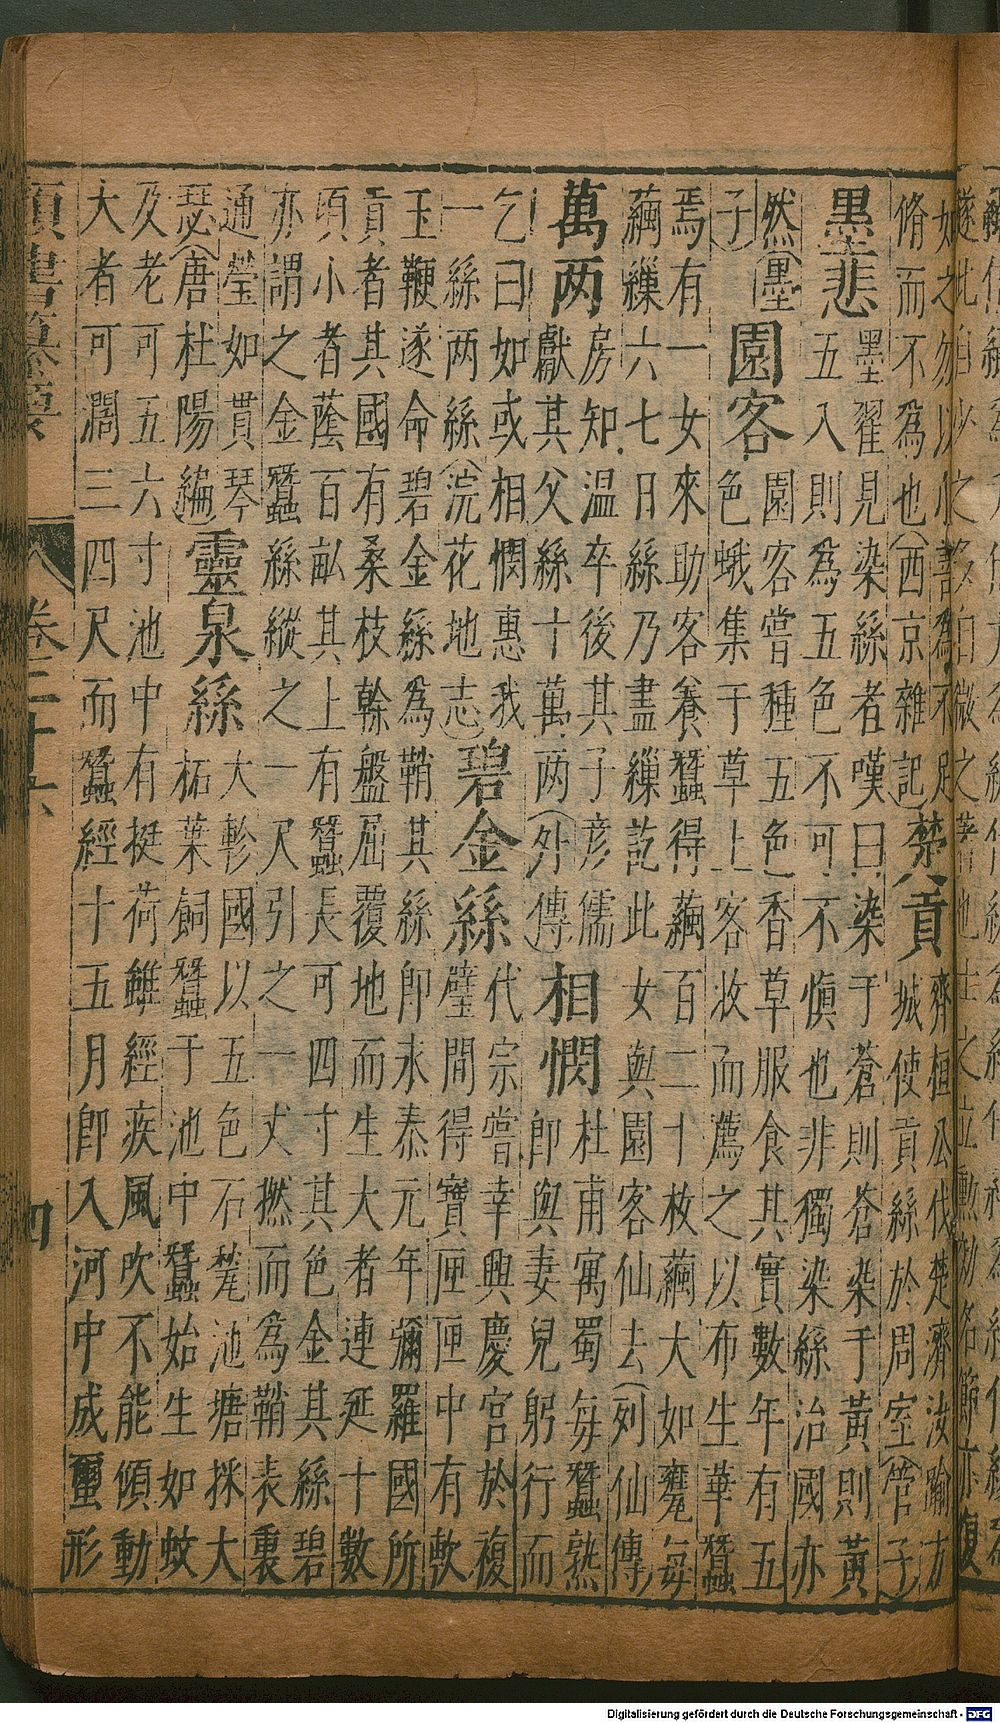 如之勿以小善爲不足
脩而不為也(西京雜記)禁貢齊桓公伐楚濟汝踰方
城使貢絲於周室(管子)
墨悲墨翟見染絲者嘆曰染于蒼則蒼染于黃則黃
五入則為五色不可不慎也非獨染絲治國亦
然(墨子)園客園客嘗種五色香草服食其實數年有五
色蛾集于草上客收而薦之以布生華蠶
焉有一女來助客養蠶得繭百二十枚繭大如甕每
繭繅六七日絲乃盡繅訖此女與園客仙去(列仙傳)
萬两房知温卒後其子彦儒
獻其父絲十萬两(外傳)相憫杜甫寓蜀每蠶熟
即與妻兒躬行而
乞曰如或相憫惠我
一絲两絲(浣花地志)碧金絲代宗嘗幸興慶宫於複
壁間得寶匣匣中有軟
玉鞭遂命碧金絲為鞘其絲卽永泰元年彌羅國所
貢者其國有桑枝幹盤屈覆地而生大者連延十數
頃小者蔭百畝其上有蠶長可四寸其色金其絲碧
亦謂之金蠶絲縱之一尺引之一丈撚而為鞘表裏
通瑩如貫琴
瑟(唐杜陽編)靈泉絲大軫國以五色石甃池塘採大
柘葉飼蠶于池中蠶始生如蚊
及老可五六寸池中有挺荷雖經疾風吹不能傾動
大者可濶三四尺而蠶經十五月卽入河中成蠒形
類書纂要
卷二十六
四
Digitalisierung gefördert durch die Deutsche Forschungsgemeinschaft - DFG